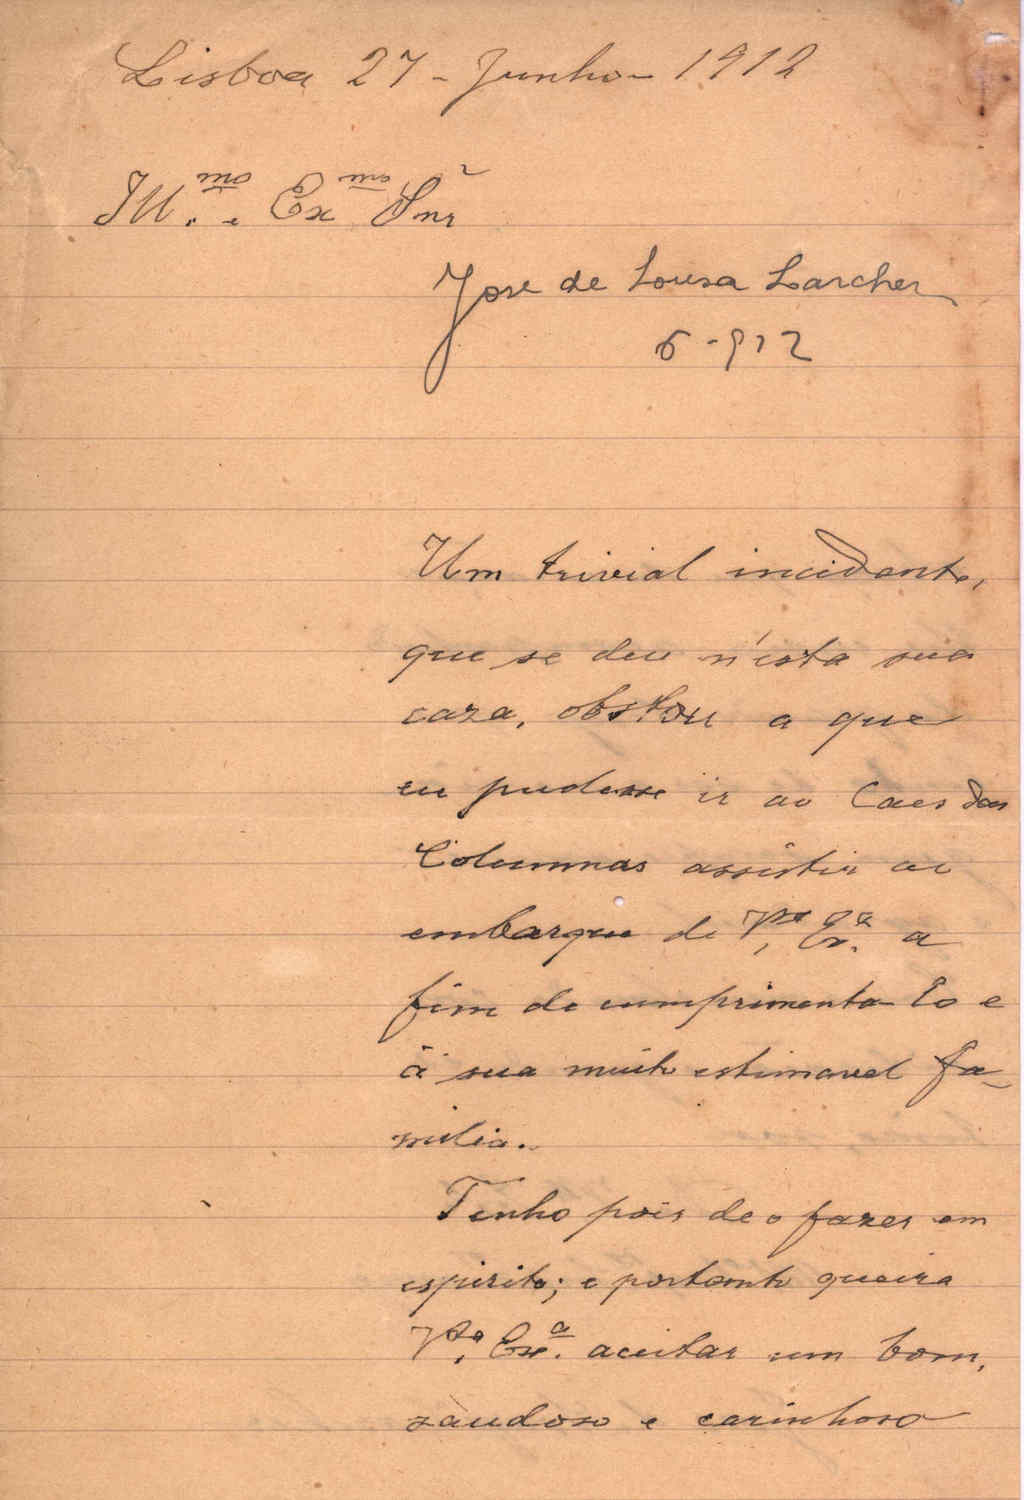 Lisboa 27 - Junho - 1912
Ill.mo e Exmo Snr
José de Sousa Larcher
6-912
Um trivial incidente,
que se deu n'esta sua
caza, obstou a que
eu pudesse ir ao Caes das
Columnas assistir ao
embarque de V.ª Ex.ª a
fim de cumprimenta-lo e
á sua muito estimavel fa-
milia.
Tenho pois de o fazer em
espirito; e portanto queira
V.ª Ex.ª aceitar um bom,
saudoso e carinhoso